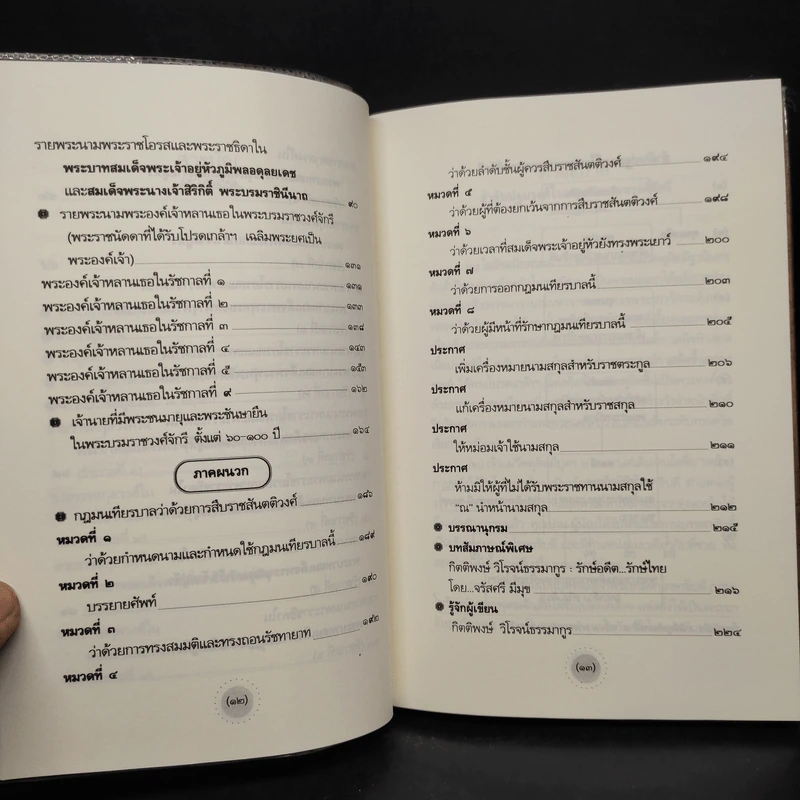 รายพระนามพระราชโอรสและพระราชธิดาใน
พระบาทสมเด็จพระเจ้าอยู่หัวภูมิพลอดุลยเดช
และสมเด็จพระนางเจ้าสิริกิติ์ พระบรมราชินีนาถ ๙๐
รายพระนามพระองค์เจ้าหลานเธอในพระบรมราชวงศ์จักรี
(พระราชนัดดาที่ได้รับโปรดเกล้าฯ เฉลิมพระยศเป็น
พระองค์เจ้า) ๑๓๑
พระองค์เจ้าหลานเธอในรัชกาลที่ ๑ ๑๓๑
พระองค์เจ้าหลานเธอในรัชกาลที่ ๒ ๑๓๓
พระองค์เจ้าหลานเธอในรัชกาลที่ ๓ ๑๓๘
พระองค์เจ้าหลานเธอในรัชกาลที่ ๔ ๑๔๓
พระองค์เจ้าหลานเธอในรัชกาลที่ ๕ ๑๕๓
พระองค์เจ้าหลานเธอในรัชกาลที่ ๙ ๑๖๒
เจ้านายที่มีพระชนมายุและพระชันษายืน
ในพระบรมราชวงศ์จักรี ตั้งแต่ ๖๐-๑๐๐ ปี ๑๖๔
ภาคผนวก
กฎมนเทียรบาลว่าด้วยการสืบราชสันตติวงศ์ ๑๘๖
หมวดที่ ๑
ว่าด้วยกำหนดนามและกำหนดใช้กฎมนเทียรบาลนี้ ๑๘๙
หมวดที่ ๒
บรรยายศัพท์ ๑๙๐
หมวดที่ ๓
ว่าด้วยการทรงสมมติและทรงถอนรัชทายาท ๑๙๒
หมวดที่ ๔
(๑๒)
ว่าด้วยลำดับชั้นผู้ควรสืบราชสันตติวงศ์ ๑๙๔
หมวดที่ ๕
ว่าด้วยผู้ที่ต้องยกเว้นจากการสืบราชสันตติวงศ์ ๑๙๘
หมวดที่ ๖
ว่าด้วยเวลาที่สมเด็จพระเจ้าอยู่หัวยังทรงพระเยาว์ ๒๐๐
หมวดที่ ๗
ว่าด้วยการออกกฎมนเทียรบาลนี้ ๒๐๓
หมวดที่ ๘
ว่าด้วยผู้มีหน้าที่รักษากฎมนเทียรบาลนี้ ๒๐๕
ประกาศ
เพิ่มเครื่องหมายนามสกุลสำหรับราชตระกูล ๒๐๖
ประกาศ
แก้เครื่องหมายนามสกุลสำหรับราชสกุล ๒๑๐
ประกาศ
ให้หม่อมเจ้าใช้นามสกุล ๒๑๑
ประกาศ
ห้ามมิให้ผู้ที่ไม่ได้รับพระราชทานนามสกุลใช้
"ณ" นำหน้านามสกุล ๒๑๒
บรรณานุกรม ๒๑๕
บทสัมภาษณ์พิเศษ
กิตติพงษ์ วิโรจน์ธรรมากูร : รักษ์อดีต...รักษ์ไทย
โดย...จรัสศรี มีมุข ๒๑๖
รู้จักผู้เขียน
กิตติพงษ์ วิโรจน์ธรรมากูร ๒๒๔
(๑๓)